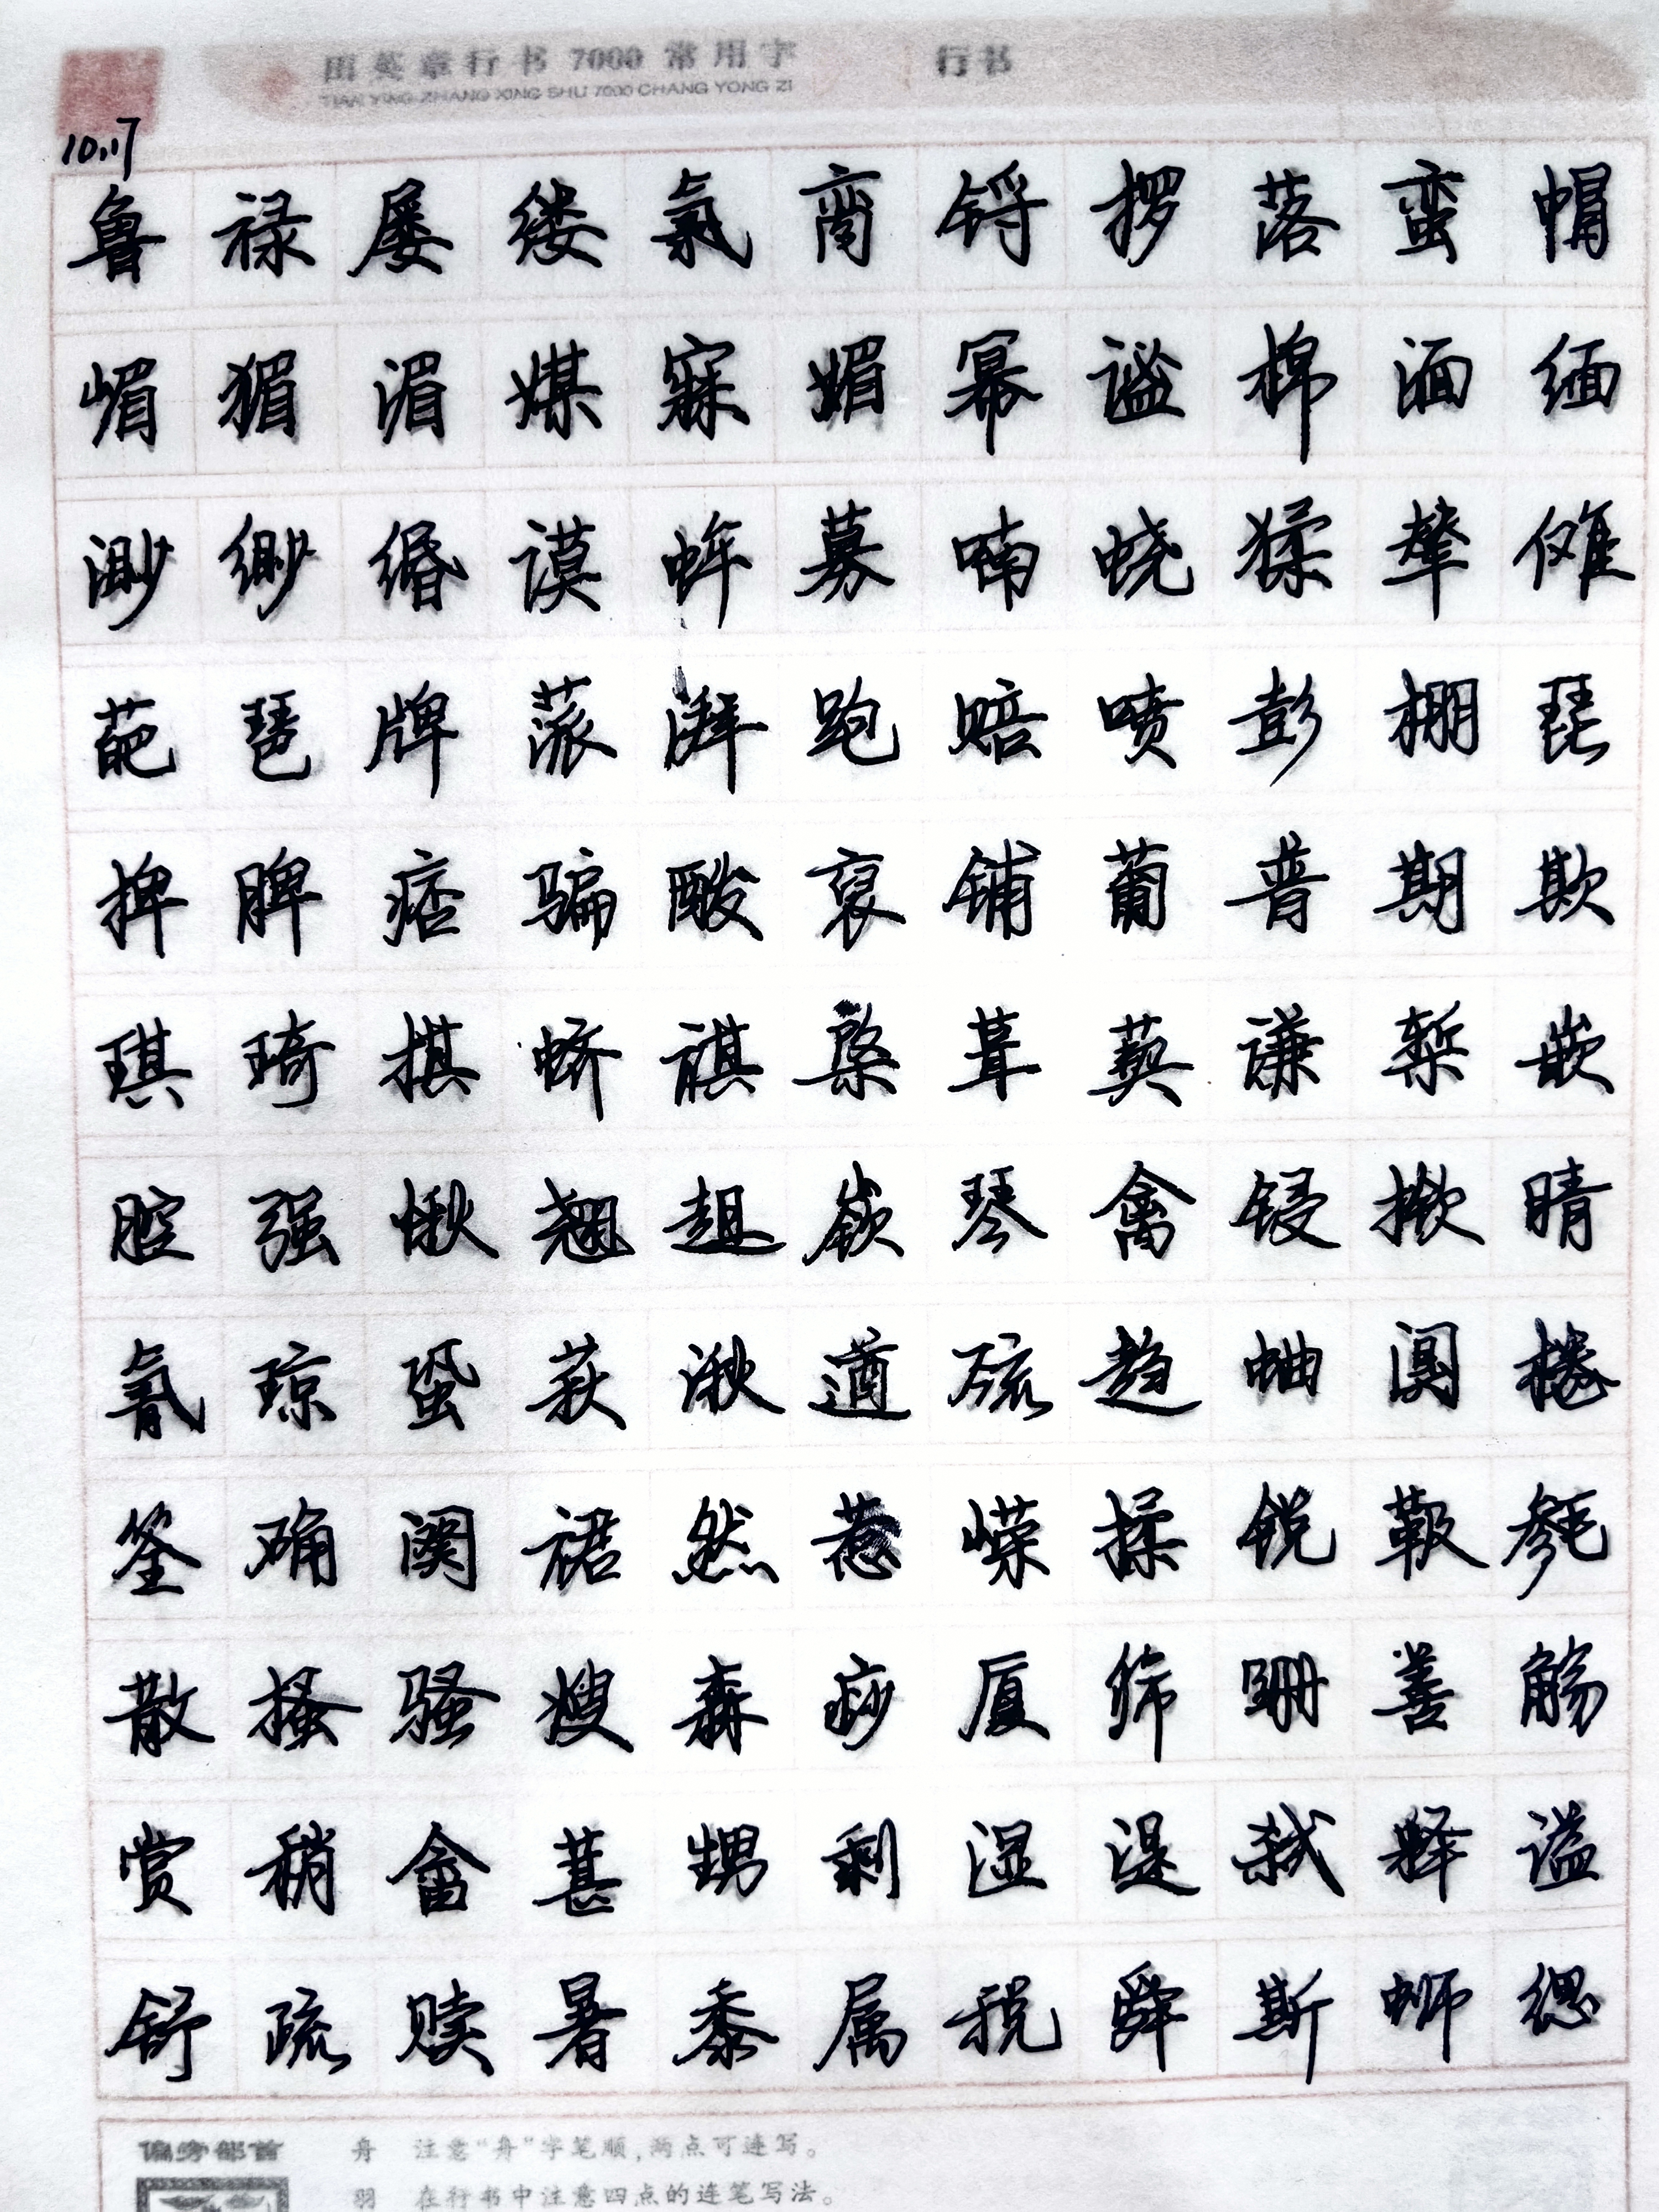 田英章行书 7000 常用字 行书
TIAN YING ZHANG XING SHU 7000 CHANG YONG ZI
10.17
鲁禄屡缕氯脔锊椤落蛮帽
嵋猸湄媒寐媚幂谧棉湎缅
渺缈缗谟蛑募喃蛲猱辇傩
葩琶牌蒎湃跑赔喷彭棚琵
椑脾痞骗酸裒铺葡普期欺
琪琦棋蛴祺綮葺葜谦椠嵌
腔强愀翘趄嵚琴禽锓揿晴
氰琼蛩萩湫遒巯趋蛐阒棬
筌确阕裙然惹嵘揉锐靸毵
散搔骚嫂森痧厦筛跚善觞
赏稍畲葚甥剩湿湜弑释谥
舒疏赎暑黍属税舜斯蛳缌
偏旁部首 舟 注意“舟”字笔顺，两点可连写。
羽 在行书中注意四点的连笔写法。